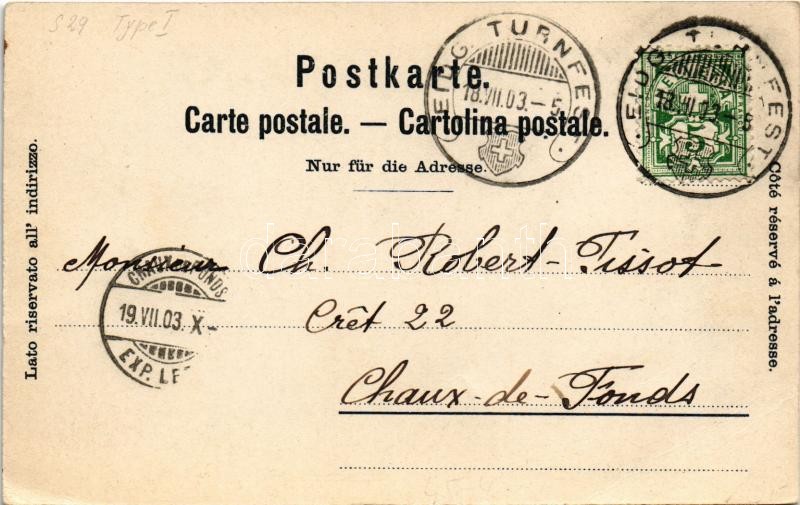 S 29 Type I
Postkarte.
Carte postale. — Cartolina postale.
Nur für die Adresse.
EIDG. TURNFEST.
18.VII.03.-5
EIDG. TURNFEST.
18.VII.03.-
5
Lato riservato all' indirizzo.
Côté réservé à l'adresse.
Monsieur Ch. Robert-Tissot
Crêt 22
Chaux-de-Fonds
19.VII.03. X-
EXP. LE
darabanth.com